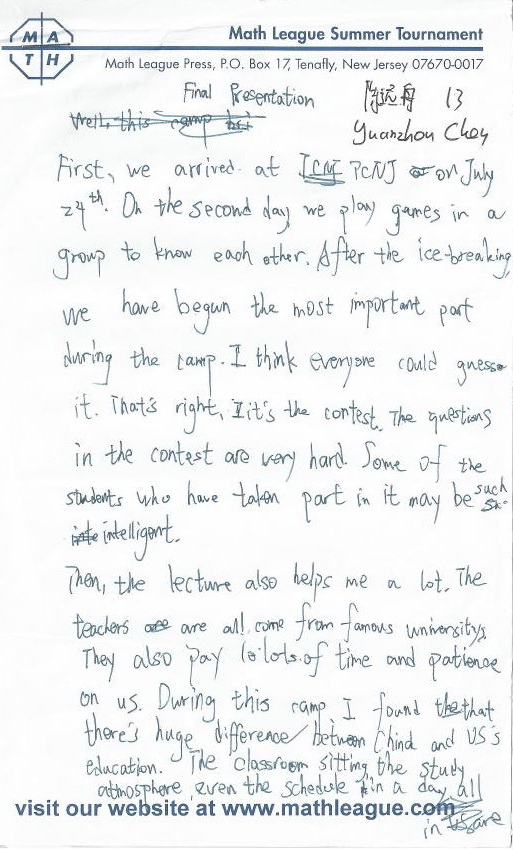 M A
T H
Math League Summer Tournament
Math League Press, P.O. Box 17, Tenafly, New Jersey 07670-0017
Final Presentation
陈远舟 13
Well, this camp
Yuanzhou Chen
First, we arrived at TCNJ on July
24th. On the second day, we play games in a
group to know each other. After the ice-breaking,
we have begun the most important part
during the camp. I think everyone could guess
it. That's right, it's the contest. The questions
in the contest are very hard. Some of the
students who have taken part in it may be such
intelligent.
Then, the lecture also helps me a lot. The
teachers are all come from famous universitys.
They also pay lots of time and patience
on us. During this camp I found that
there's huge difference between China and US's
education. The classroom sitting the study
atmosphere even the schedule in a day all
visit our website at www.mathleague.com
in are